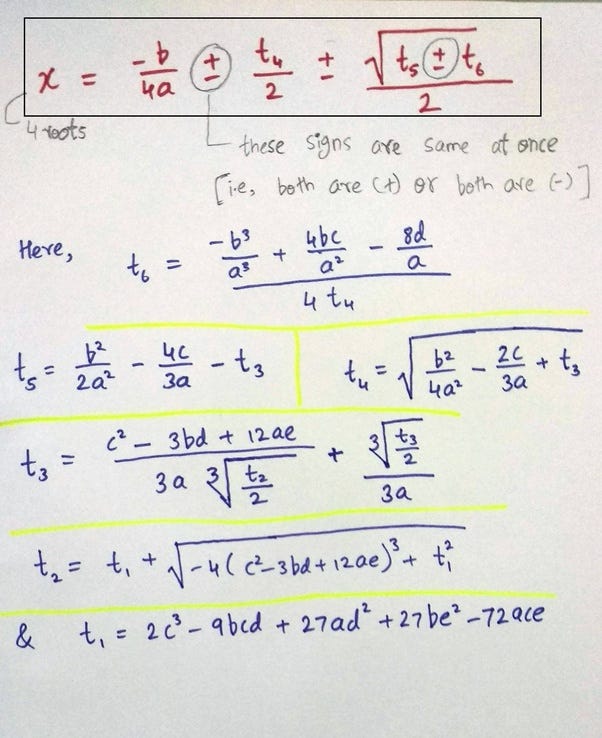 x = -b/4a ± t₄/2 ± √(t₅ ± t₆)/2
4 roots
these signs are same at once
[i.e, both are (+) or both are (-)]
Here, t₆ = (-b³/a³ + 4bc/a² - 8d/a)/(4t₄)
t₅ = b²/2a² - 4c/3a - t₃
t₄ = √(b²/4a² - 2c/3a + t₃)
t₃ = (c² - 3bd + 12ae)/(3a ∛(t₂/2)) + ∛(t₃/2)/3a
t₂ = t₁ + √(-4(c²-3bd+12ae)³ + t₁²)
& t₁ = 2c³ - 9bcd + 27ad² + 27be² - 72ace